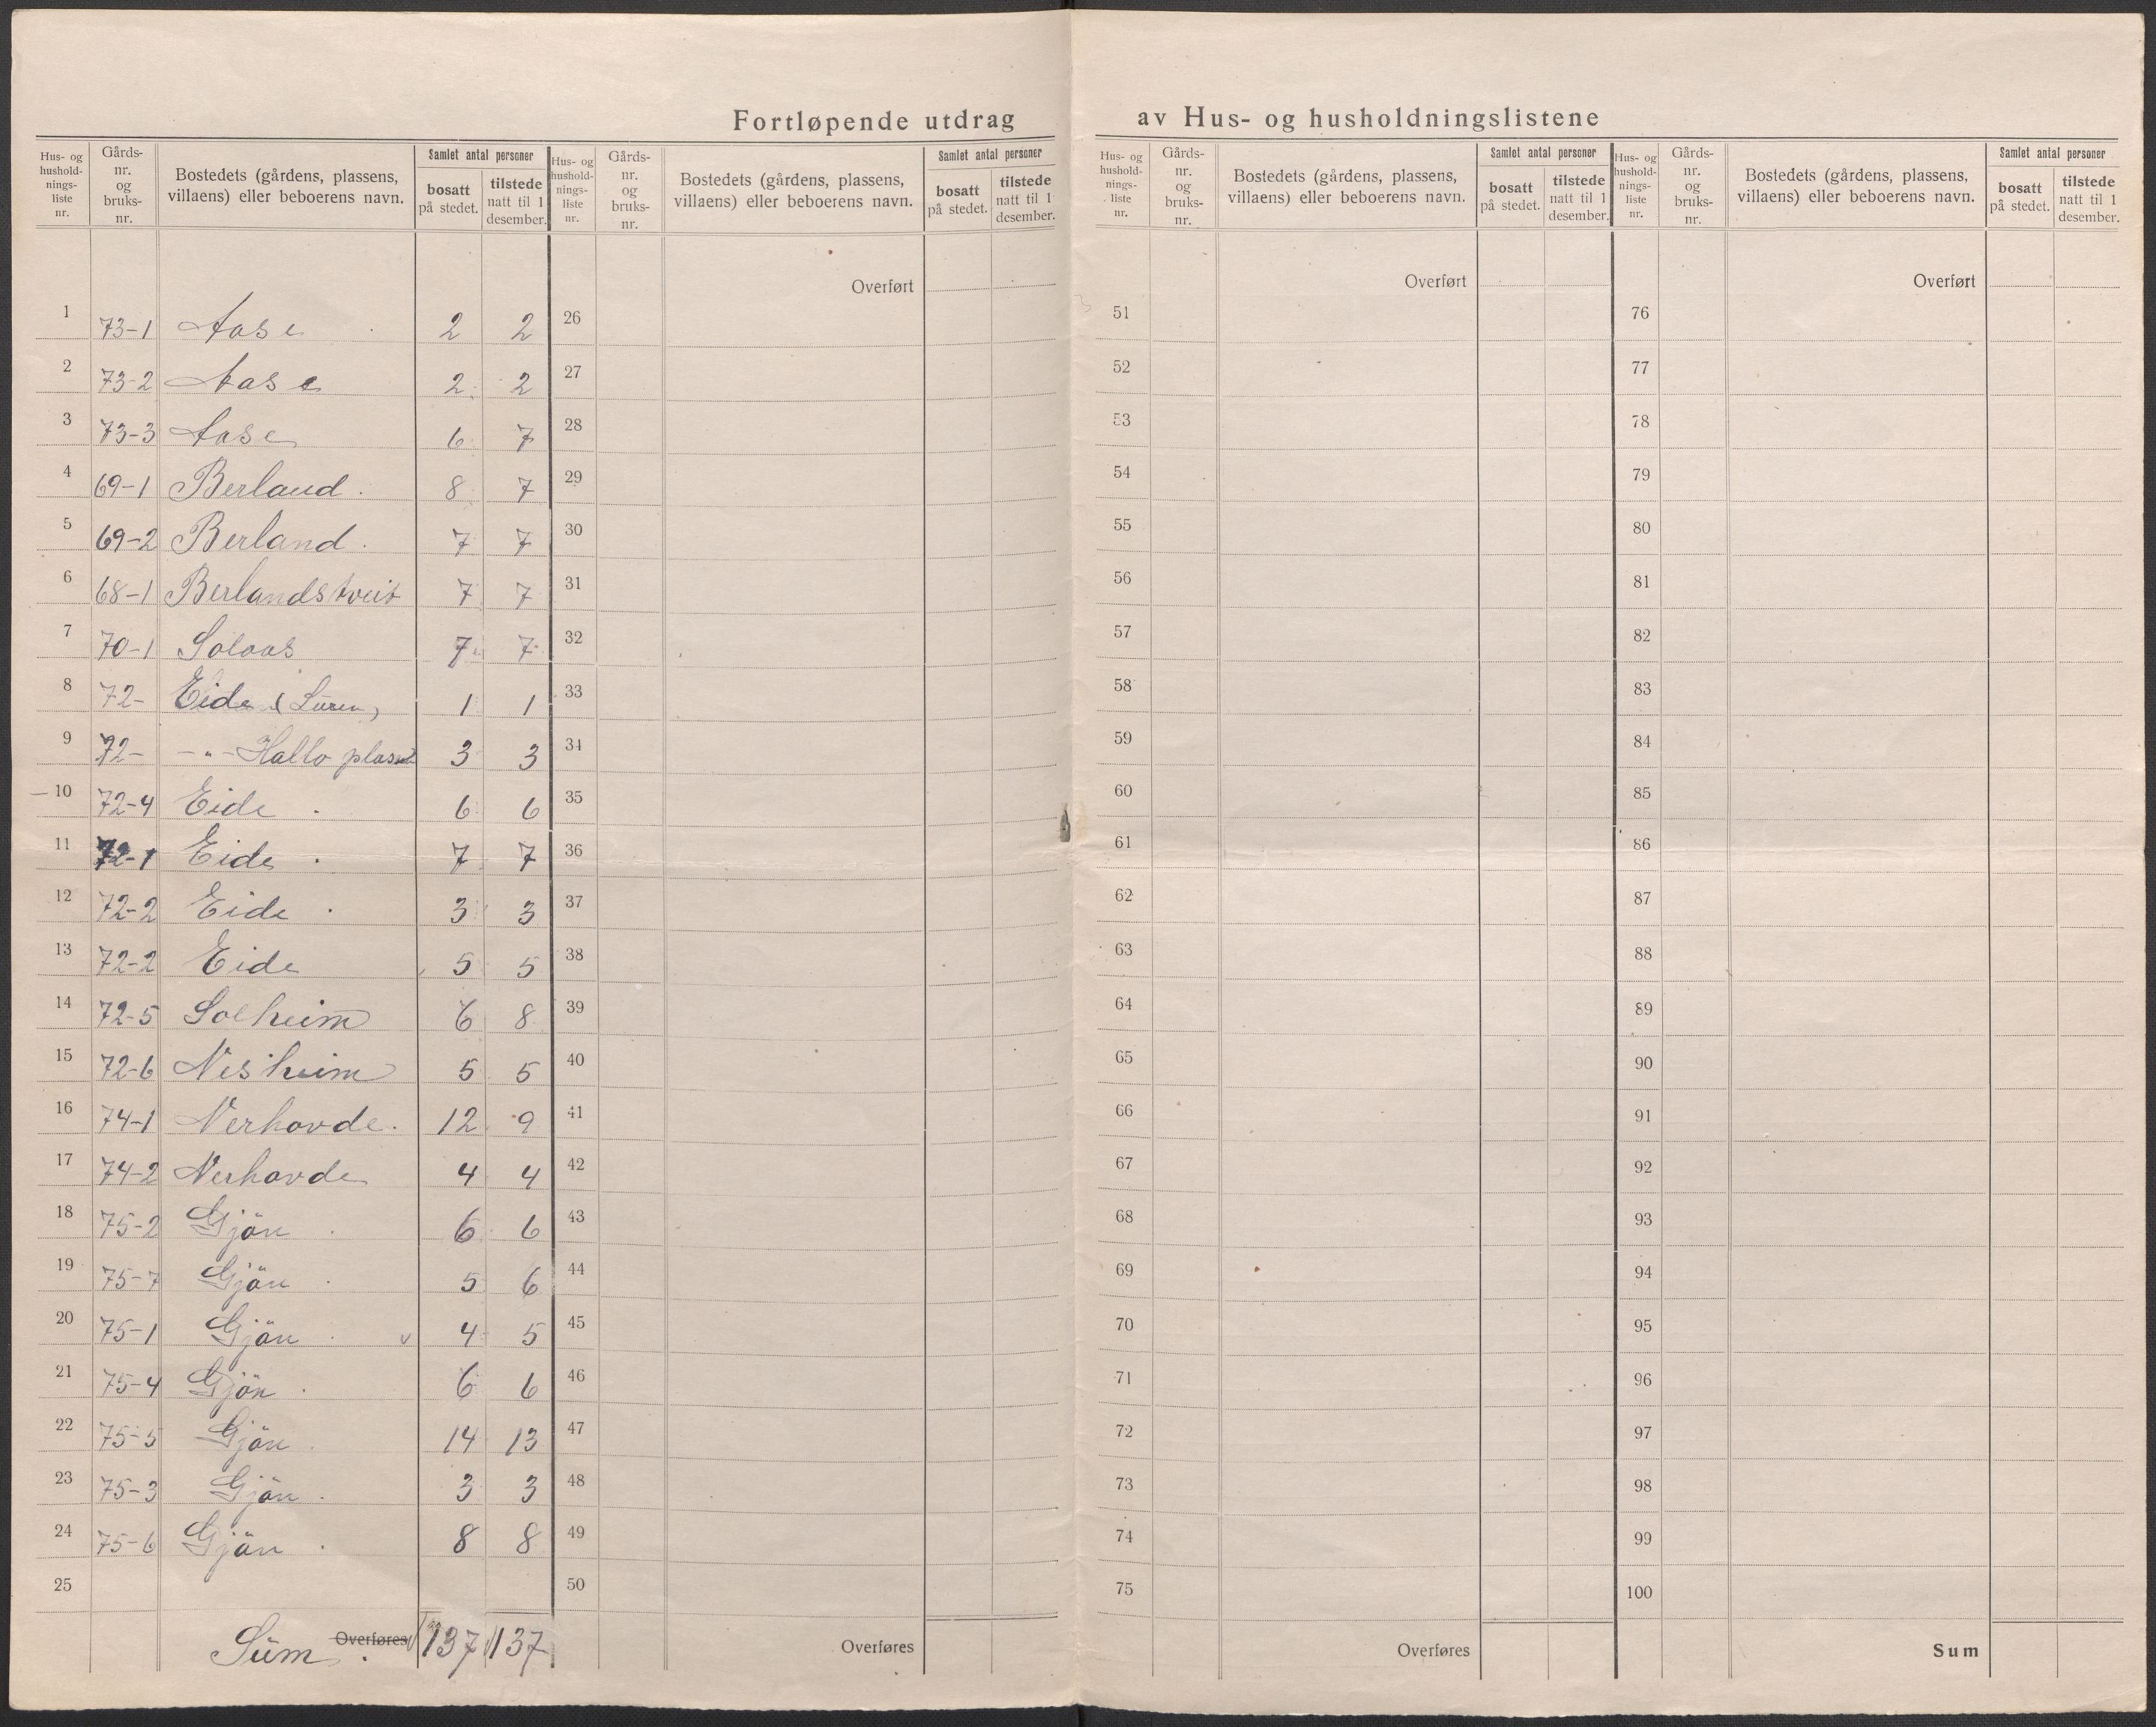 Fortløpende utdrag av Hus- og husholdningslistene
Hus- og hushold-nings-liste nr. Gårds-nr. og bruks-nr. Bostedets (gårdens, plassens, villaens) eller beboerens navn. Samlet antal personer bosatt på stedet. tilstede natt til 1 desember.
Hus- og hushold-nings-liste nr. Gårds-nr. og bruks-nr. Bostedets (gårdens, plassens, villaens) eller beboerens navn. Samlet antal personer bosatt på stedet. tilstede natt til 1 desember.
Hus- og hushold-nings-liste nr. Gårds-nr. og bruks-nr. Bostedets (gårdens, plassens, villaens) eller beboerens navn. Samlet antal personer bosatt på stedet. tilstede natt til 1 desember.
Hus- og hushold-nings-liste nr. Gårds-nr. og bruks-nr. Bostedets (gårdens, plassens, villaens) eller beboerens navn. Samlet antal personer bosatt på stedet. tilstede natt til 1 desember.
Overført Overført Overført
1 73-1 Aase 2 2 26 51 76
2 73-2 Aase 2 2 27 52 77
3 73-3 Aase 6 7 28 53 78
4 69-1 Berland. 8 7 29 54 79
5 69-2 Berland. 7 7 30 55 80
6 68-1 Berlandstveit 7 7 31 56 81
7 70-1 Solaas 7 7 32 57 82
8 72- Eide 1 1 33 58 83
9 72- -"- Hallo plass 3 3 34 59 84
10 72-4 Eide . 6 6 35 60 85
11 72-1 Eide . 7 7 36 61 86
12 72-2 Eide . 3 3 37 62 87
13 72-2 Eide 5 5 38 63 88
14 72-5 Solheim 6 8 39 64 89
15 72-6 Nesheim 5 5 40 65 90
16 74-1 Nerhovde. 12 9 41 66 91
17 74-2 Nerhovde 4 4 42 67 92
18 75-2 Gjön . 6 6 43 68 93
19 75-7 Gjön . 5 6 44 69 94
20 75-1 Gjön . v 4 5 45 70 95
21 75-4 Gjön . 6 6 46 71 96
22 75-5 Gjön . 14 13 47 72 97
23 75-3 Gjön . 3 3 48 73 98
24 75-6 Gjön . 8 8 49 74 99
25 50 75 100
Süm. Overføres 137 137 Overføres Overføres Sum